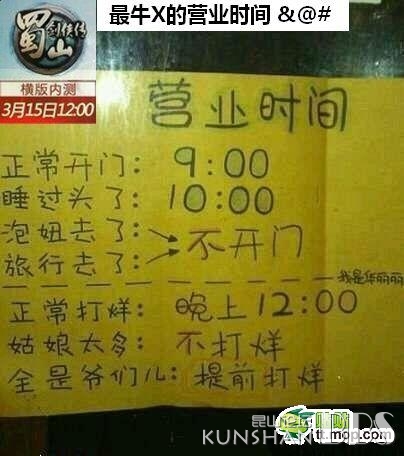 最牛X的营业时间 &@#
蜀山
剑侠传
横版内测
3月15日12:00
营业时间
正常开门：9:00
睡过头了：10:00
泡妞去了：
不开门
旅行去了：
我是华丽丽
正常打烊：晚上12:00
姑娘太多：不打烊
全是爷们儿：提前打烊
KUNSHAN
tt.mop.com